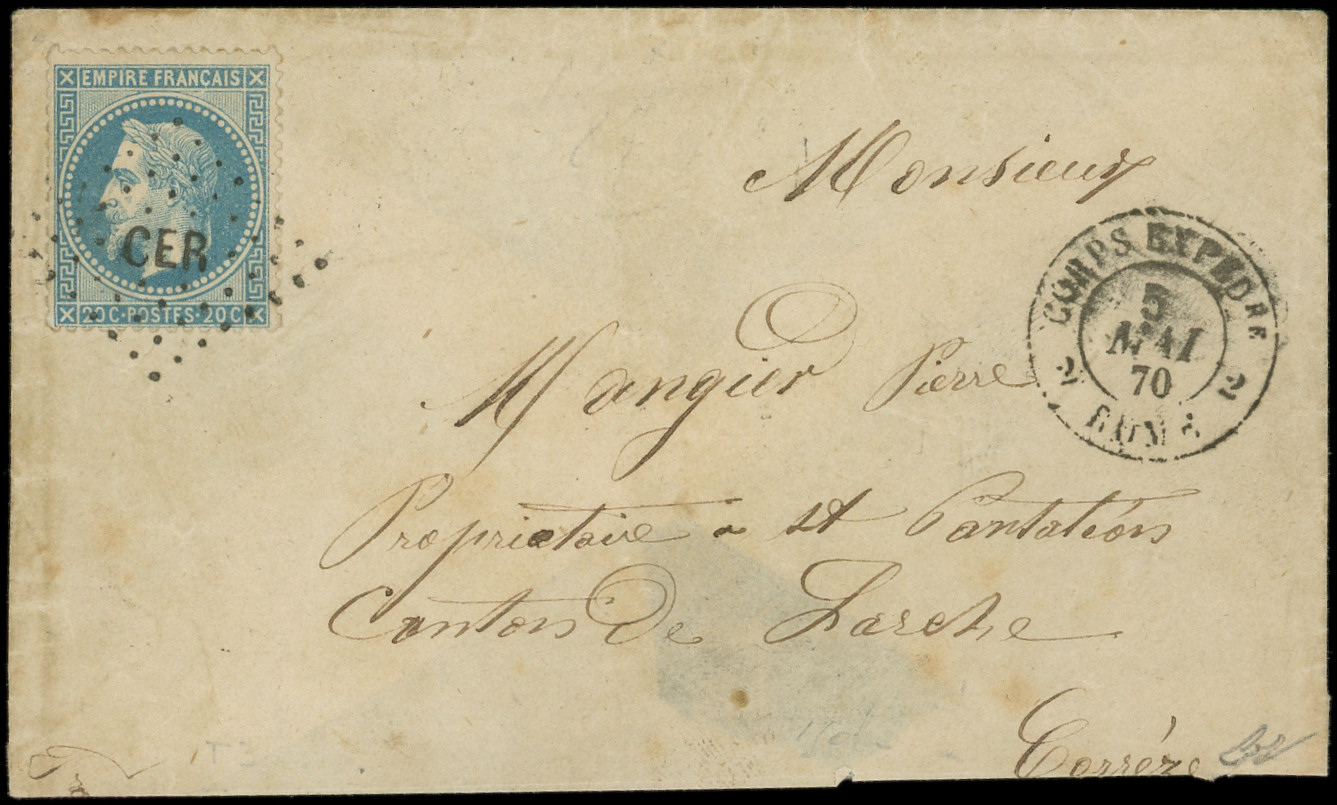 EMPIRE FRANÇAIS
CER
20 C · POSTES · 20 C
Monsieur
CORPS EXPEDRE
5
MAI
70
2 2
ROME
Mangier Pierre
Propriétaire a st Pantaléon
Canton de Larche
Corrèze